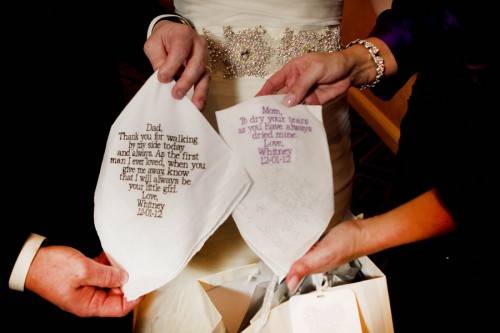 Dad,
Thank you for walking
by my side today
and always. As the first
man I ever loved, when you
give me away, know
that I will always be
your little girl.
Love,
Whitney
12-01-12
Mom,
To dry your tears
as you have always
dried mine.
Love,
Whitney
12-01-12